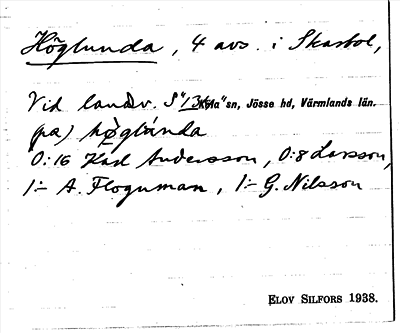 Höglunda, 4 avs. i Skasbol,
Vid landsv. sn, Jösse hd, Värmlands län.
(på) høglúnda
0:16 Karl Andersson, 0:8 Larsson,
1:- A. Flognman, 1:- G. Nilsson
ELOV SILFORS 1938.